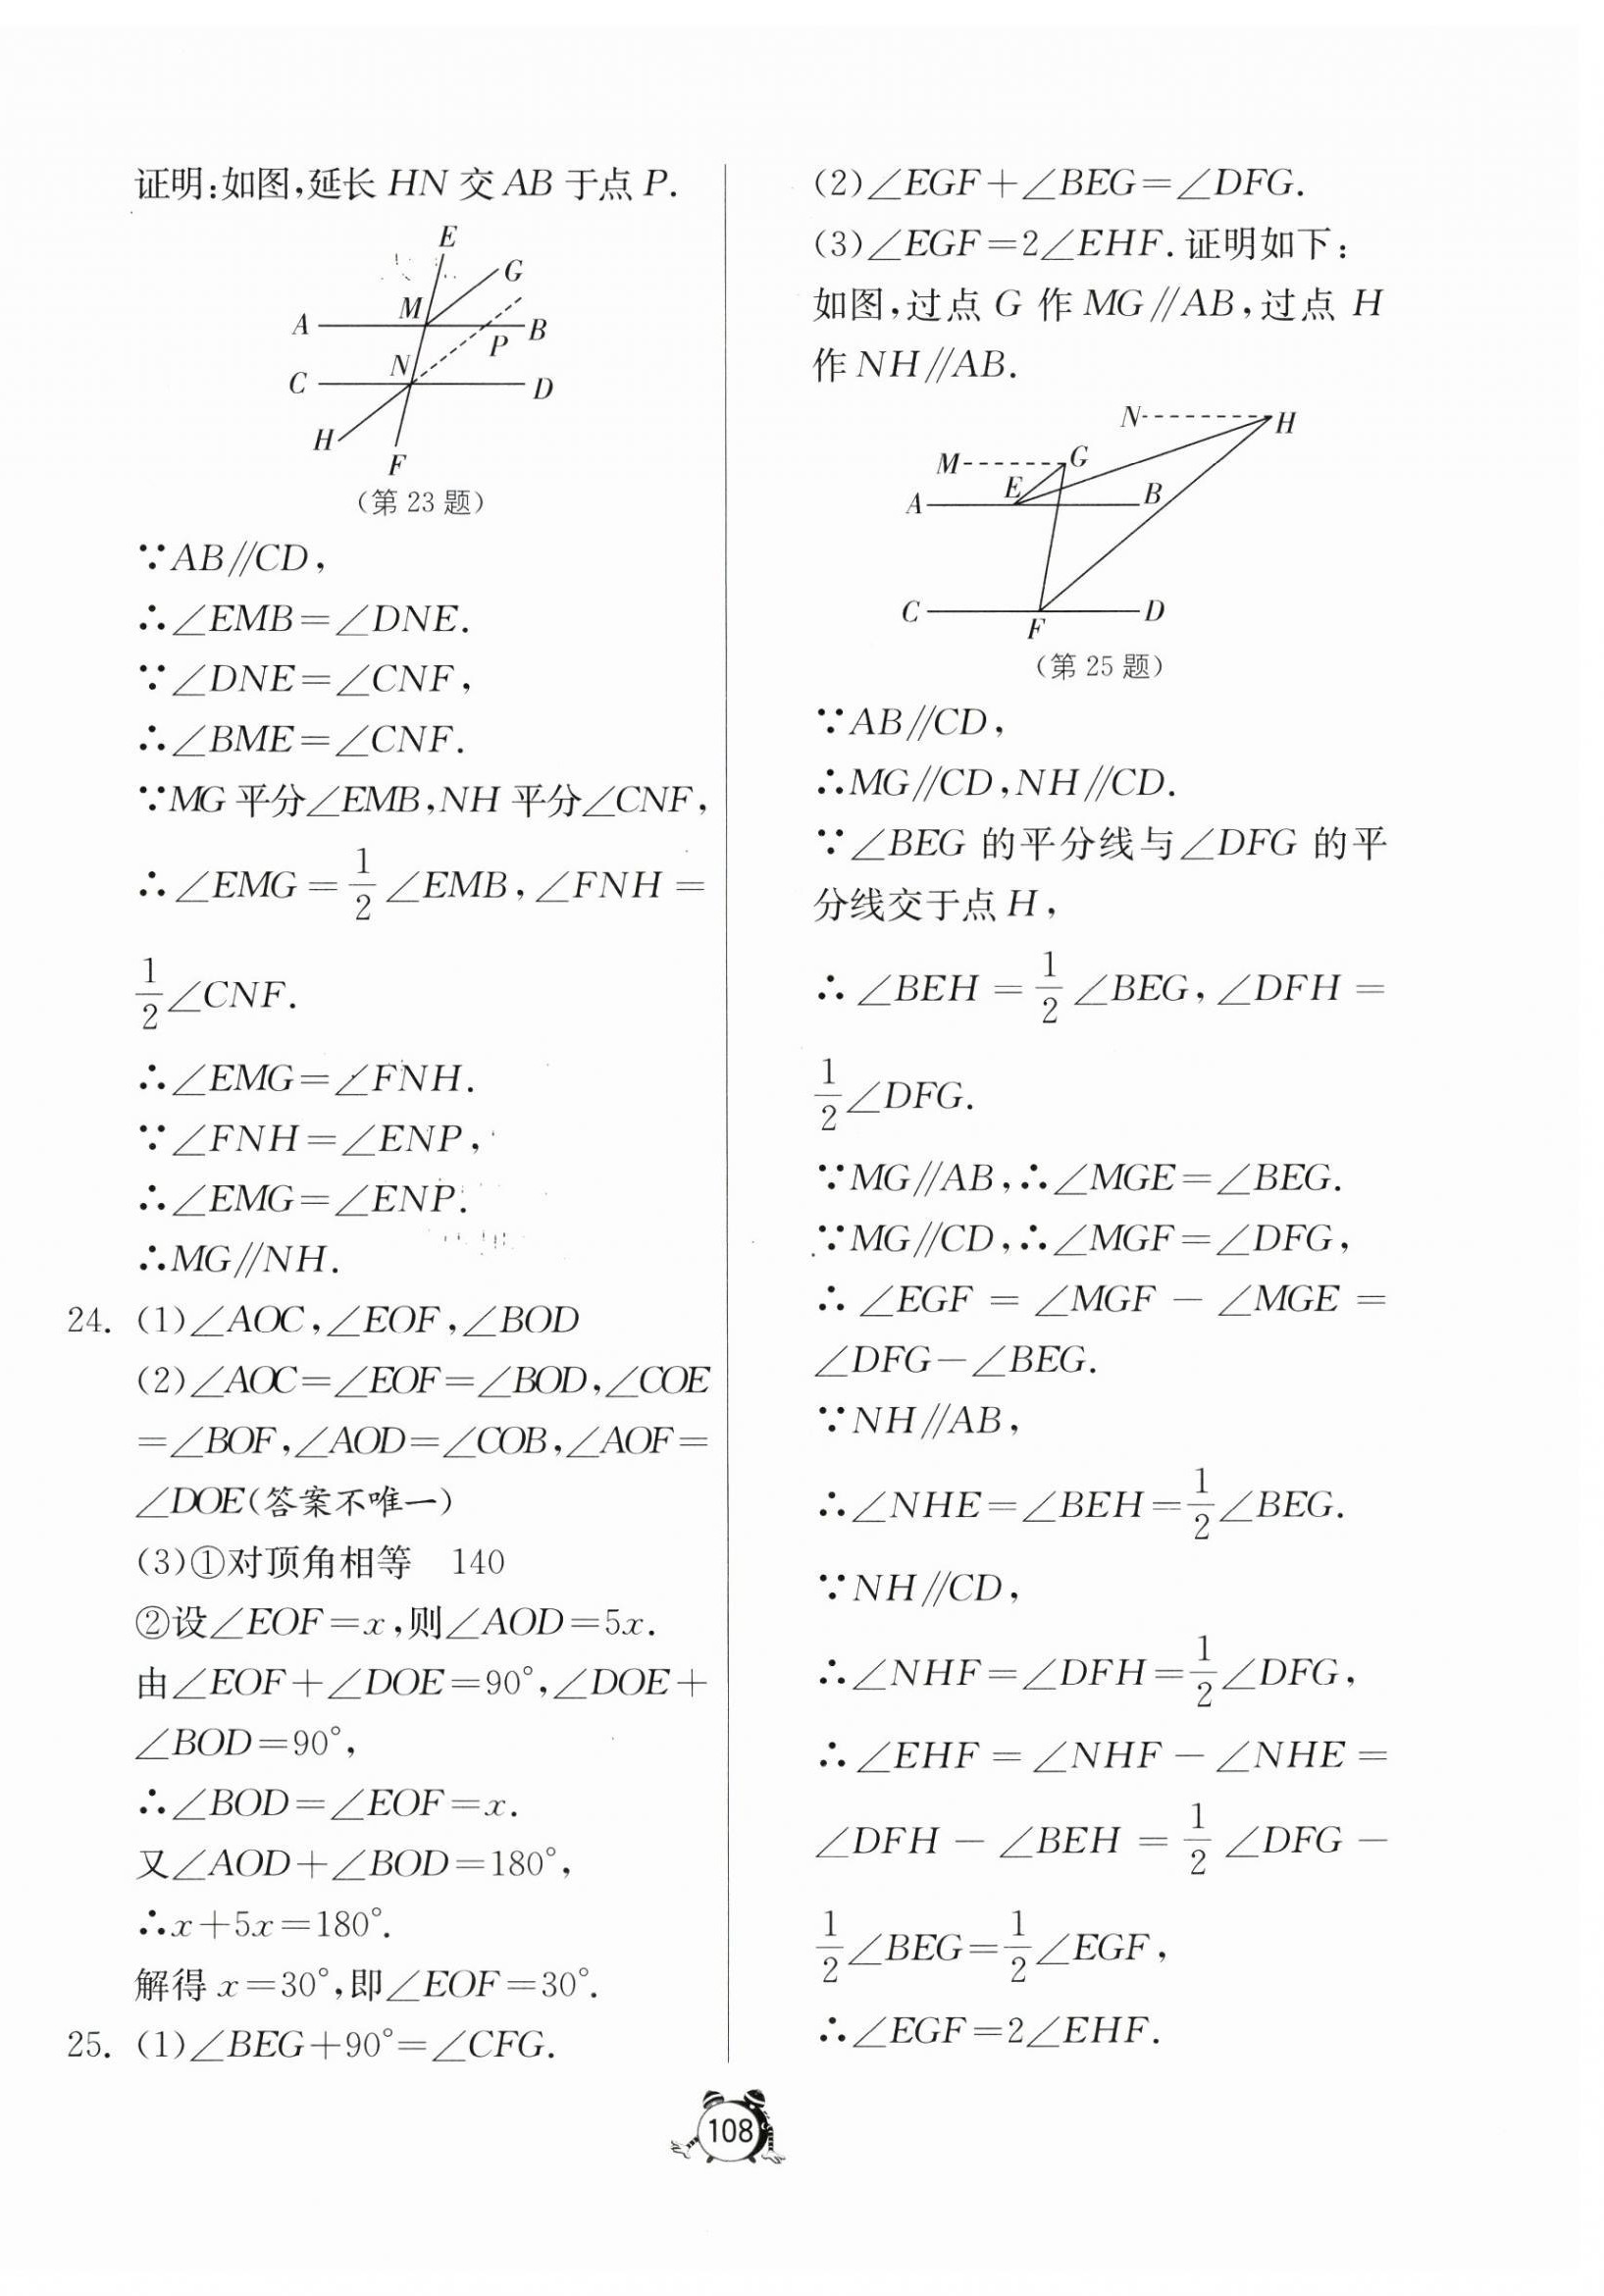 证明:如图,延长 HN 交 AB 于点 P.
E
G
M
A
B
P
N
C
D
H
F
(第 23 题)
∵AB∥CD,
∴∠EMB=∠DNE.
∵∠DNE=∠CNF,
∴∠BME=∠CNF.
∵MG 平分∠EMB,NH 平分∠CNF,
∴∠EMG=1/2∠EMB,∠FNH=
1/2∠CNF.
∴∠EMG=∠FNH.
∵∠FNH=∠ENP,
∴∠EMG=∠ENP.
∴MG∥NH.
24. (1)∠AOC,∠EOF,∠BOD
(2)∠AOC=∠EOF=∠BOD,∠COE
=∠BOF,∠AOD=∠COB,∠AOF=
∠DOE(答案不唯一)
(3)①对顶角相等 140
②设∠EOF=x,则∠AOD=5x.
由∠EOF+∠DOE=90°,∠DOE+
∠BOD=90°,
∴∠BOD=∠EOF=x.
又∠AOD+∠BOD=180°,
∴x+5x=180°.
解得 x=30°,即∠EOF=30°.
25. (1)∠BEG+90°=∠CFG.
(2)∠EGF+∠BEG=∠DFG.
(3)∠EGF=2∠EHF.证明如下:
如图,过点 G 作 MG∥AB,过点 H
作 NH∥AB.
N
H
M
G
E
A
B
C
D
F
(第 25 题)
∵AB∥CD,
∴MG∥CD,NH∥CD.
∵∠BEG 的平分线与∠DFG 的平
分线交于点 H,
∴∠BEH=1/2∠BEG,∠DFH=
1/2∠DFG.
∵MG∥AB,∴∠MGE=∠BEG.
∵MG∥CD,∴∠MGF=∠DFG,
∴∠EGF=∠MGF-∠MGE=
∠DFG-∠BEG.
∵NH∥AB,
∴∠NHE=∠BEH=1/2∠BEG.
∵NH∥CD,
∴∠NHF=∠DFH=1/2∠DFG,
∴∠EHF=∠NHF-∠NHE=
∠DFH-∠BEH=1/2∠DFG-
1/2∠BEG=1/2∠EGF,
∴∠EGF=2∠EHF.
108